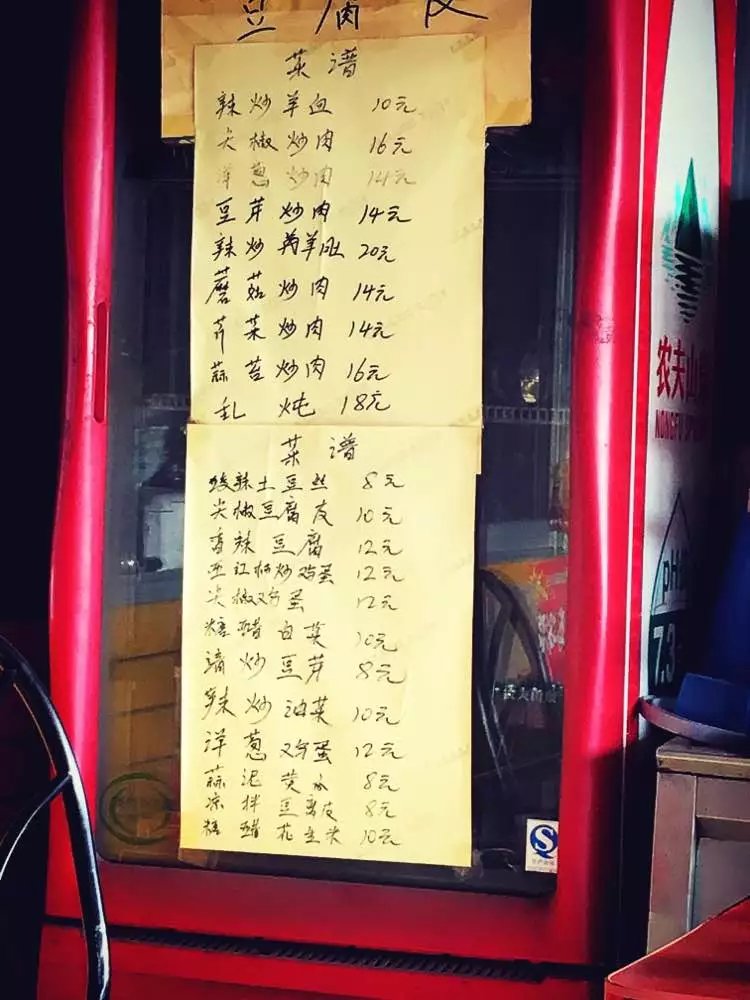 豆腐皮
菜谱
辣炒羊血 10元
尖椒炒肉 16元
洋葱炒肉 14元
豆芽炒肉 14元
辣炒羊肚 20元
蘑菇炒肉 14元
芹菜炒肉 14元
蒜苔炒肉 16元
乱炖 18元
菜谱
酸辣土豆丝 8元
尖椒豆腐皮 10元
香辣豆腐 12元
西红柿炒鸡蛋 12元
尖椒鸡蛋 12元
糖醋白菜 10元
清炒豆芽 8元
辣炒油菜 10元
洋葱鸡蛋 12元
蒜泥黄瓜 8元
凉拌豆腐皮 8元
糖醋花生米 10元
农夫山
NONGFU
pH
7.3
S